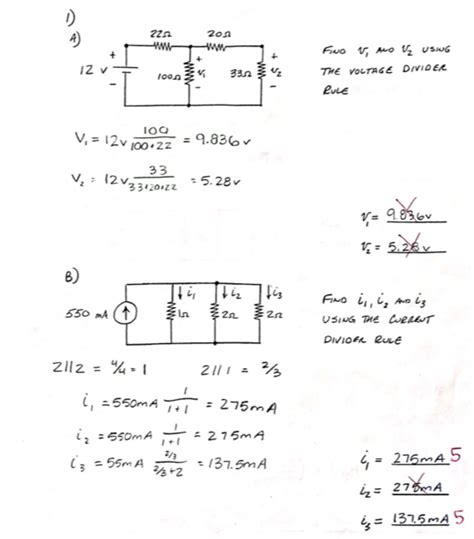 1)
A)
22Ω 20Ω
+ + +
12 V 100Ω V₁ 33Ω V₂
- - -
FIND V₁ AND V₂ USING
THE VOLTAGE DIVIDER
RULE
V₁ = 12V 100/(100+22) = 9.836V
V₂ = 12V 33/(33+20+22) = 5.28V
V₁= 9.836V
V₂= 5.28V
B)
550 mA i₁ 1Ω i₂ 2Ω i₃ 2Ω
FIND i₁, i₂ AND i₃
USING THE CURRENT
DIVIDER RULE
2||2 = 4/4 = 1 2||1 = 2/3
i₁ = 550mA 1/(1+1) = 275mA
i₂ = 550mA 1/(1+1) = 275mA
i₃ = 55mA (2/3)/(2/3+2) = 137.5mA
i₁ = 275mA 5
i₂ = 275mA
i₃ = 137.5mA 5